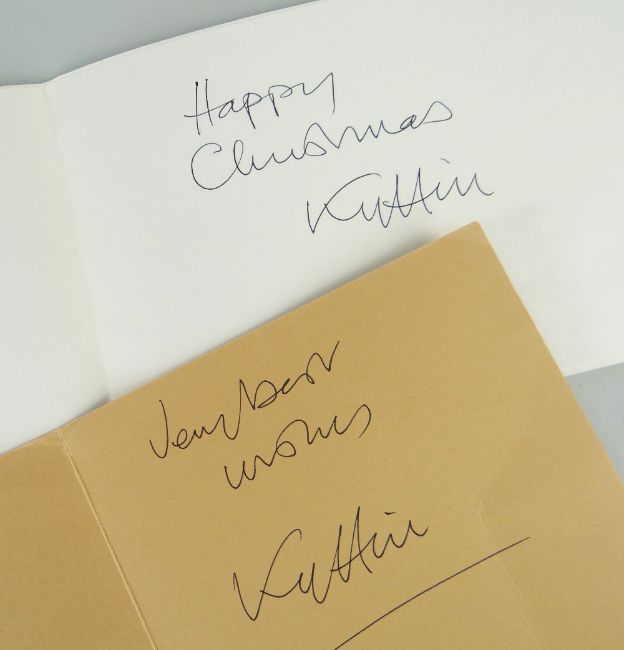 Happy
Christmas
Kyffin
Very best
wishes
Kyffin